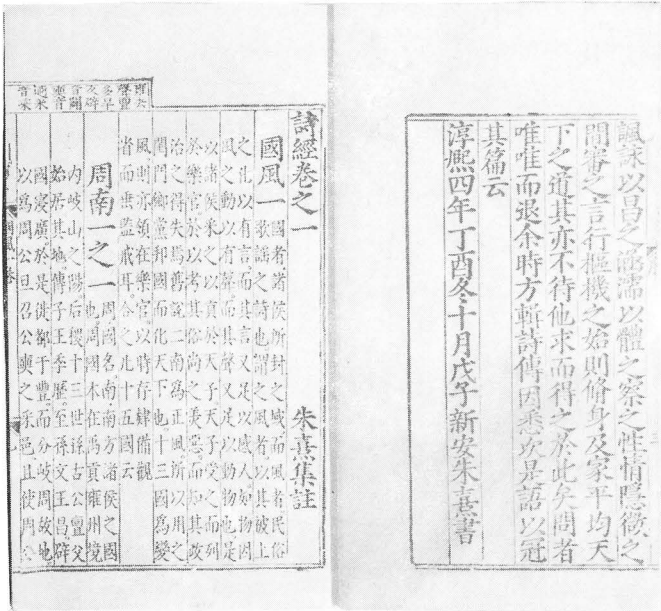 諷詠以昌之涵濡以體之察之性情隱微之
間審之言行樞機之始則脩身及家平均天
下之道其亦不待他求而得之於此矣問者
唯唯而退余時方輯詩傳因悉次是語以冠
其篇云
淳熙四年丁酉冬十月戊子新安朱熹書
雍去
聲亶
多旱
反辟
音闢
奭音
適采
音菜
詩經卷之一 朱熹集註
國風一 國者諸侯所封之域而風者民俗
歌謠之詩也謂之風者以其被上
之化以有言而其言又足以感人如物因
風之動以有聲而其聲又足以動物也是
以諸侯采之以貢於天子天子受之而列
於樂官於以考其俗尚之美惡而知其政
治之得失焉舊說二南為正風所以用之
閨門鄉黨邦國而化天下也十三國為變
風則亦領在樂官以時存肄備觀
省而垂監戒耳合之凡十五國云
周南一之一 周國名南南方諸侯之國
也周國本在禹貢雍州境
內岐山之陽后稷十三世孫古公亶父
始居其地傳子王季歷至孫文王昌辟
國寖廣於是徙都于豐而分岐周故地
以為周公旦召公奭之采邑且使周公